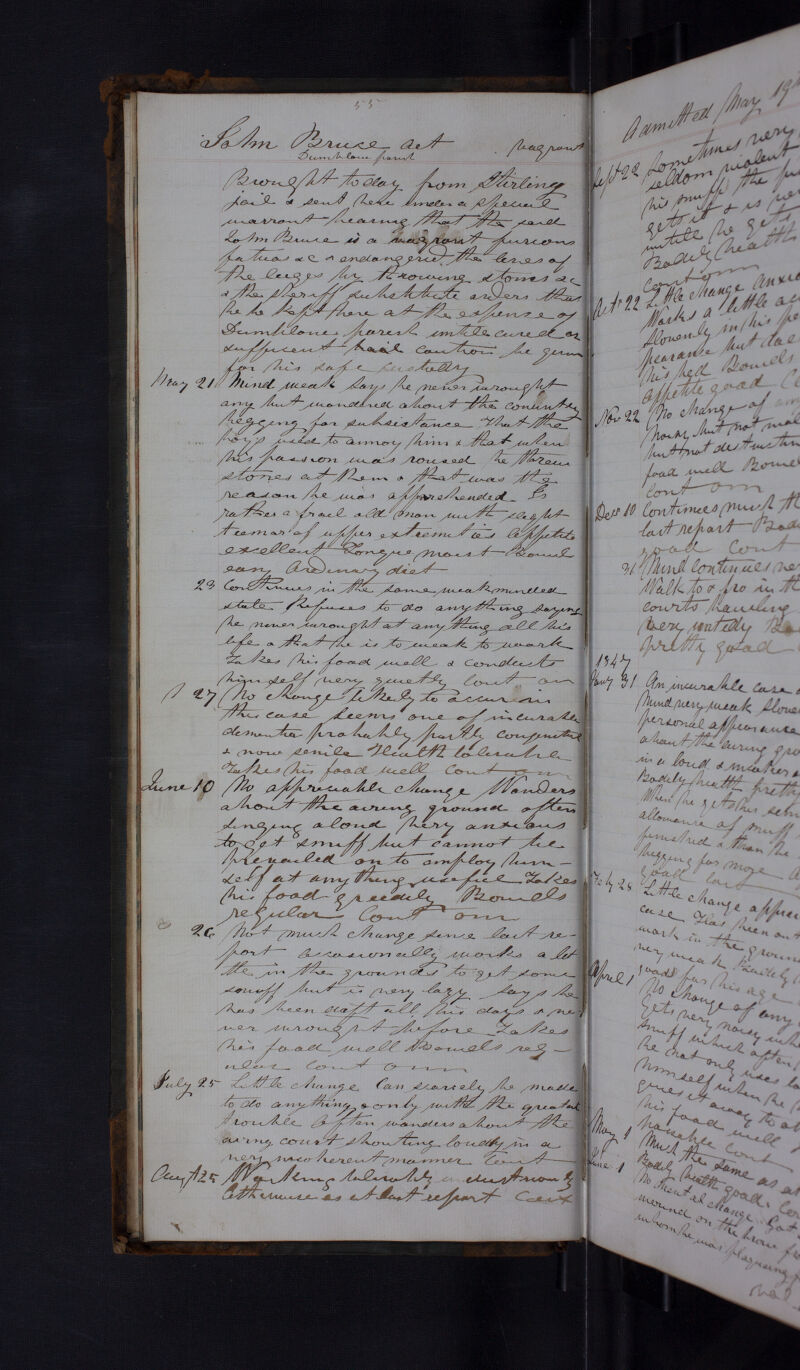 55
John Bruce aet vagrant
Dumblane parish
Brought today from Stirling
jail & sent here under a special
warrant bearing that the said
John Bruce is a vagrant furious
fatuous &c & endangered the lives of
the lieges by throwing stones &c
& the Sheriff Substitute orders that
he be kept here at the expense of
Dumblane parish until cured or
sufficient bail caution be given
for his safe custody
May 21 Mind weak says he never wrought
any but wandered about the country
begging for subsistance That the
boys used to annoy him & that when
his passion was roused he threw
stones at them & that was the
reason he was apprehended Is
rather a frail old man with slight
tremor of upper extremeties Appetite
excellent Tongue moist Bowels
easy Ordinary diet
23 Continues in the same weak minded
state Refuses to do anything saying
he never wrought at any thing all his
life & that he is to weak to work
Takes his food well & conducts
himself very quietly Cont om
27 No change likely to occur in
this case Seems one of incurable
dementia probably partly congenital
& now senile Health tolerable
Takes his food well Cont om
June 10 No appreciable change Wanders
about the airing ground often
singing aloud Very anxious
to get snuff but cannot be
prevailed on to employ him-
self at any thing useful Takes
his food greedily Bowels
regular Cont om
26 Not much change since last re-
port Occasionally works a lit
tle in the grounds to get some
snuff but is very lazy Says he
has been daft all his days & ne
ver wrought before Takes
his food well Bowels reg-
ular Cont om
July 25 Little change Can scarcely be made
to do any thing & only with the greatest
trouble Often wanders about the
airing court shouting loudly in a
very incoherent manner Cont
Augt 25 Working tolerably industriously
Otherwise as at last report Cont
Admitted May 19th
Sept 22 Sometimes very
seldom violent
his snuff the
gets it & is
until he gets
Bodily health
Cont om
Oct 22 Little change
Works a little
Slovenly in his
pearance but
his bed Bowels
appetite good
Nov 22 No change of
noisy but not
but not
food well
Cont om
Dec 10 Continues much
last report
good Cont
31 Mind continues
Walk to & fro in
courts
very untidy
pretty good
1847
Jany 31 An incurable case
Mind very weak
personal appearance
about the airing
in a loud &
Bodily health pretty
When he gets his
allowance of snuff
finished & then he
begging for more
good Cont
Feby 28 Little change
case Has been
work in the ground
very weak Bodily
good for his age
April 1 No change of any
Gets very noisy
snuff which often
he not only uses
himself when he
gives it away to
his food well
Cont
May 1 Much the same as
Bodily health good
June 1 No mental change Got
wound on the brow
whom he was plaguing